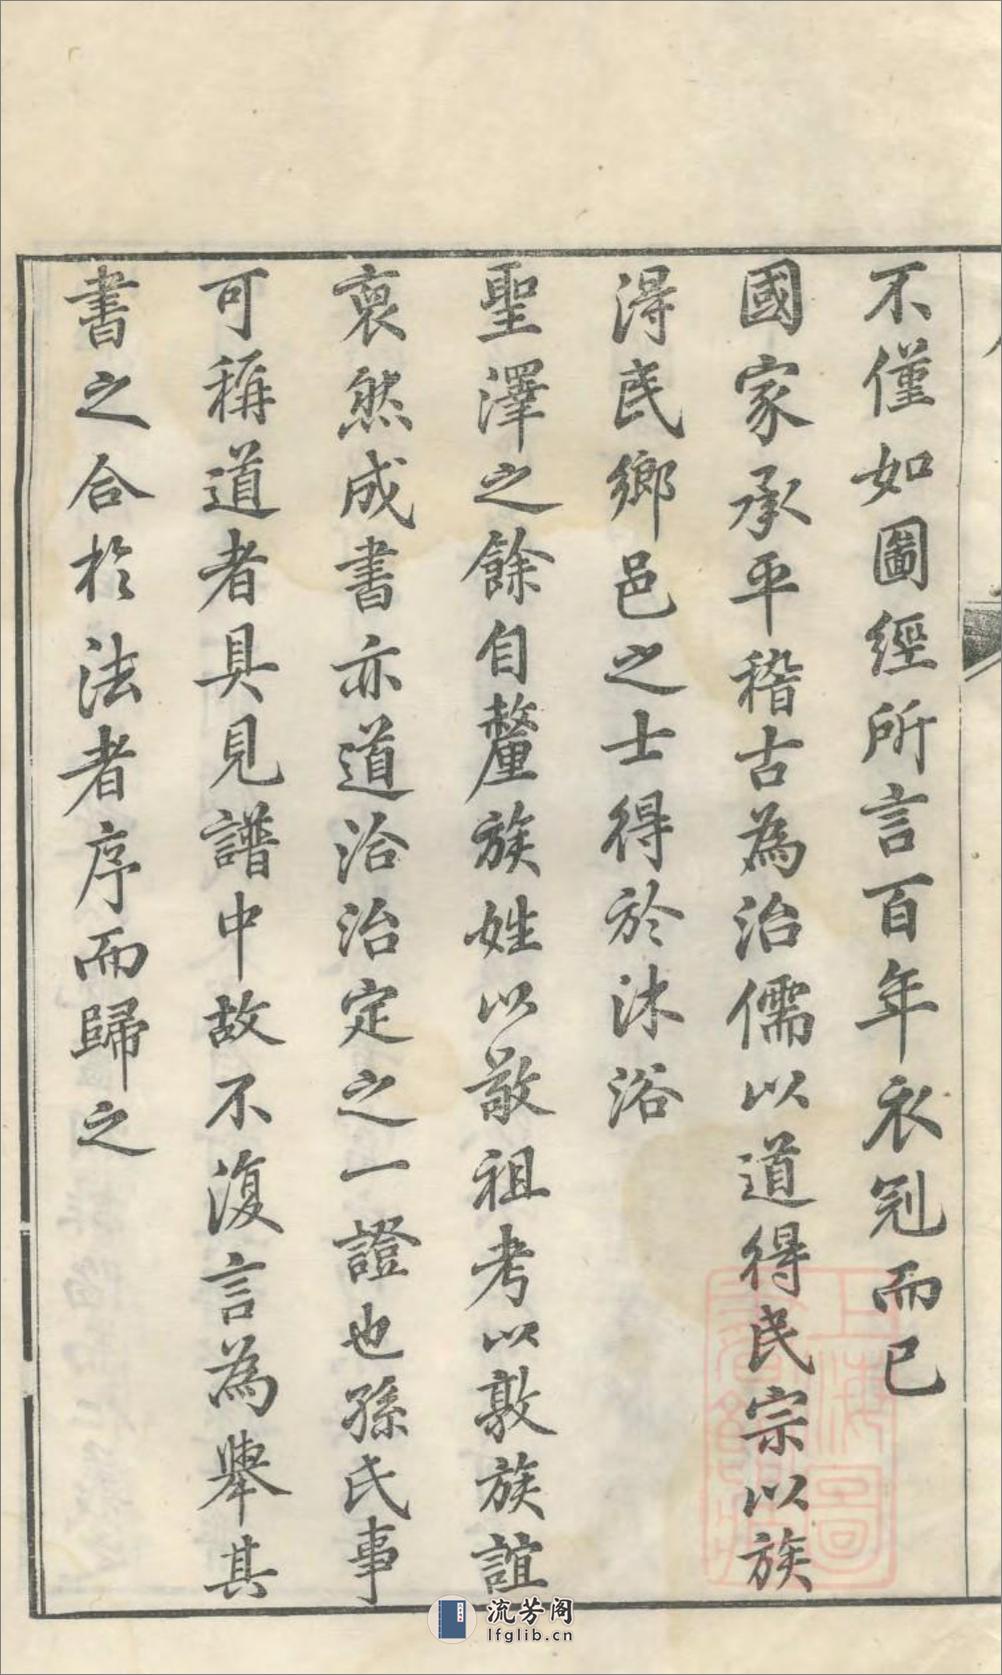 不僅如圖經所言百年衣冠而已
國家承平稽古為治儒以道得民宗以族
得民鄉邑之士得於沐浴
聖澤之餘自釐族姓以敬祖考以敦族誼
裒然成書亦道洽治定之一證也孫氏事
可稱道者具見譜中故不復言為舉其
書之合於法者序而歸之
流芳阁
lfglib.cn